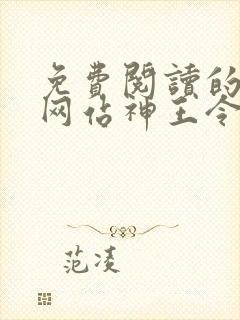 免費閱讀的
网佔神王令
范凌